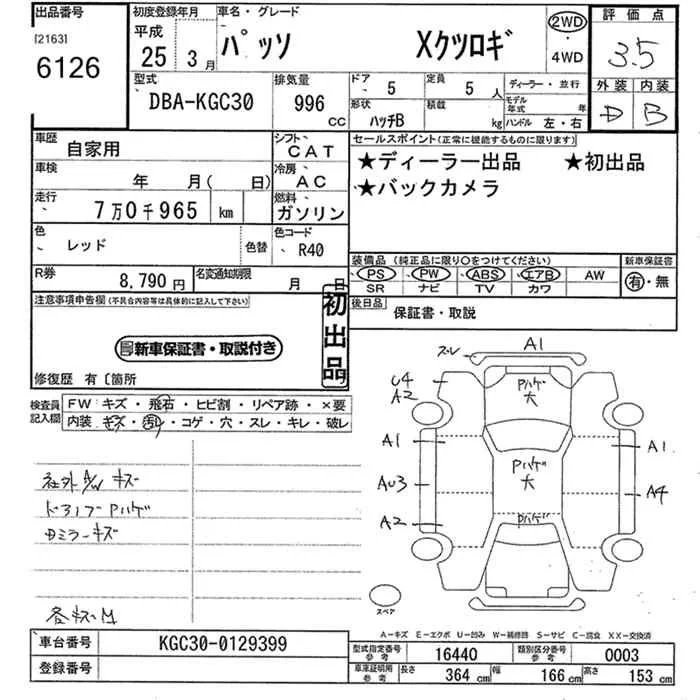 出品番号
[2163]
6126
初度登録年月
平成
25 3月
車名・グレード
パッソ Xクツロギ
2WD
・
4WD
評価点
3.5
外装 内装
D B
型式
DBA-KGC30
排気量
996
CC
ドア
5
定員
5人
ディーラー・並行
形状
ハッチB
積載
kg
モデル年式 年
ハンドル 左・右
車歴
自家用
シフト
CAT
車検
年 月( 日)
冷房
AC
走行
7万0千965 km
燃料
ガソリン
色
レッド
色替
色コード
R40
R券
8,790円
名変通知期限
月 日
セールスポイント(正常に機能するものに限ります)
★ディーラー出品 ★初出品
★バックカメラ
装備品 (純正品に限り○をつけてください)
PS PW ABS エアB AW
SR ナビ TV カワ
新車保証書
有・無
後日品
保証書・取説
注意事項申告欄(不具合内容等は具体的に記入して下さい)
新車保証書・取説付き
初出品
修復歴 有〔箇所
検査員記入欄
FW: キズ・飛石・ヒビ割・リペア跡・×要
内装・キズ・汚レ・コゲ・穴・スレ・キレ・破レ
社外A/W キズ
ドアノブ Pハゲ
キズ
スレ A1
U4
A2
Pハゲ
大
A1 A1
Pハゲ
大
AU3 A4
A2
Pハゲ
スペア
A-キズ E-エクボ U-凹み W-補修跡 S-サビ C-腐食 XX-交換済
車台番号
KGC30-0129399
登録番号
型式指定番号
参考
16440
類別区分番号
参考
0003
車庫証明用
参考
長さ 364 cm 幅 166 cm 高さ 153 cm